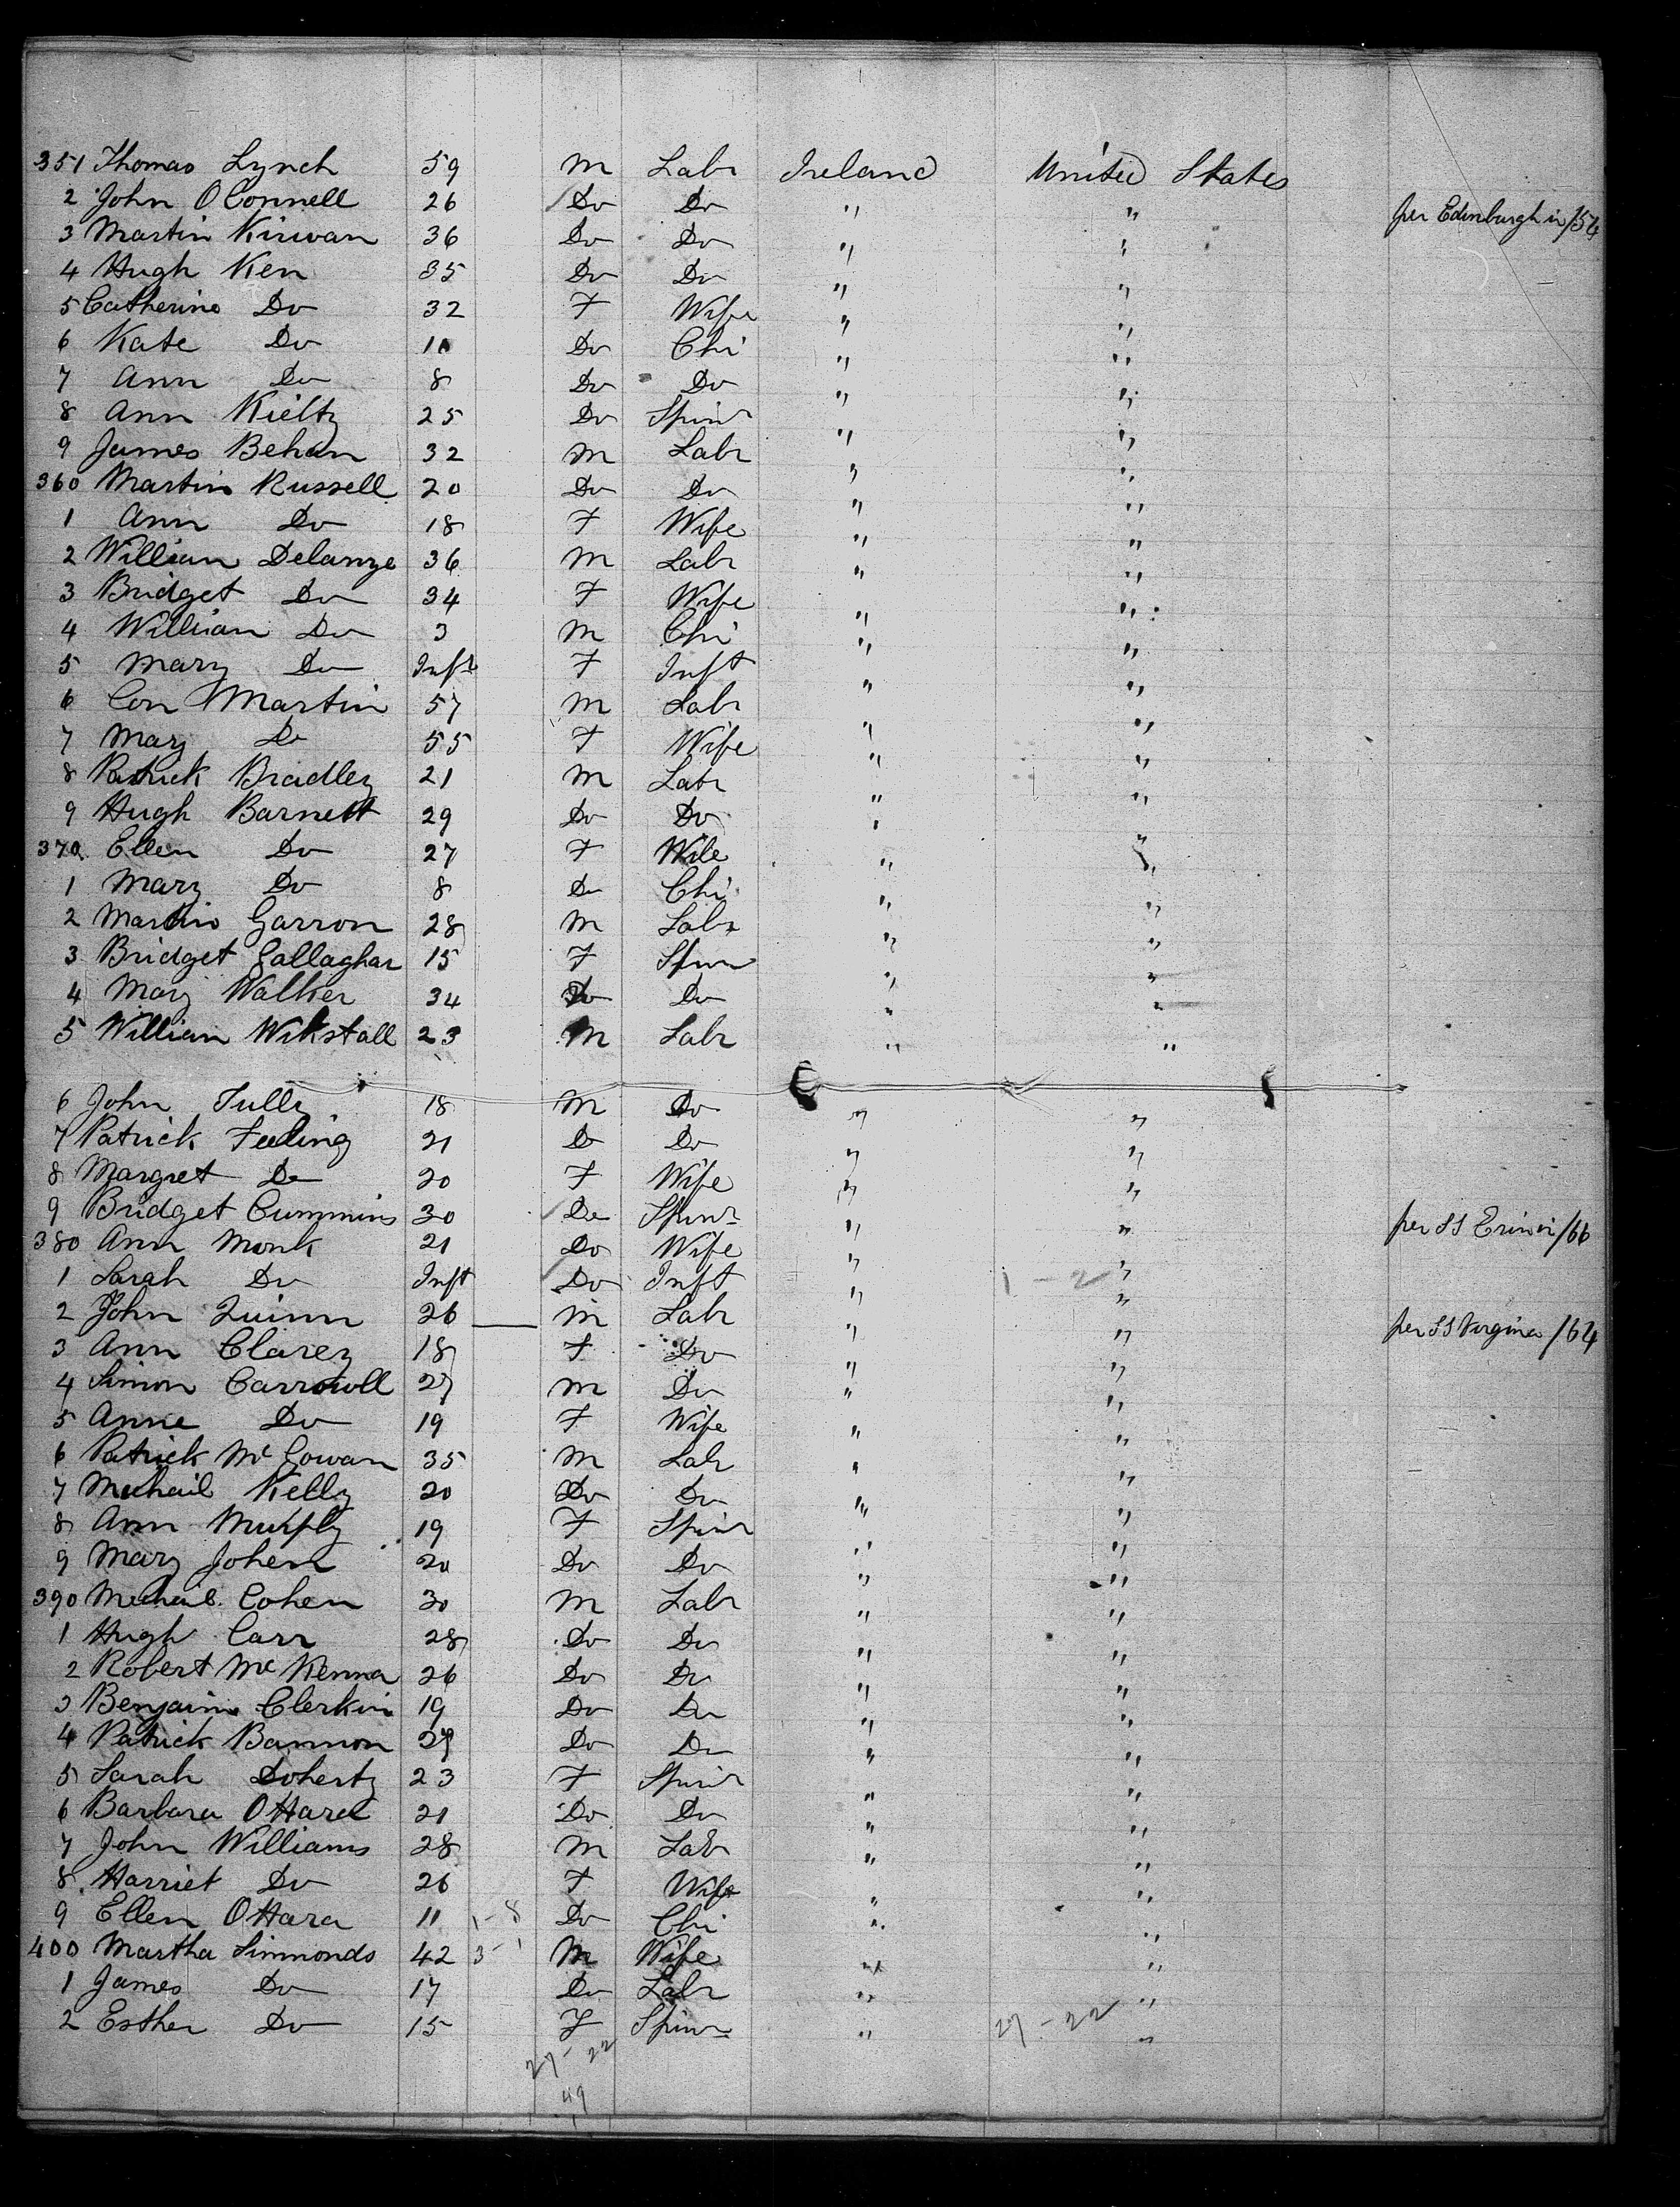 351 Thomas Lynch 59 M Labr Ireland United States
2 John OConnell 26 Do Do " " per Edinburgh in /54
3 Martin Kirwan 36 Do Do " "
4 Hugh Ken 35 Do Do " "
5 Catherine Do 32 F Wife " "
6 Kate Do 10 Do Chi " "
7 Ann Do 8 Do Do " "
8 Ann Kielty 25 Do Spinr " "
9 James Behan 32 M Labr " "
360 Martin Russell 20 Do Do " "
1 Ann Do 18 F Wife " "
2 William Delanye 36 M Labr " "
3 Bridget Do 34 F Wife " "
4 William Do 3 M Chi " "
5 Mary Do Inft F Inft " "
6 Con Martin 57 M Labr " "
7 Mary Do 55 F Wife " "
8 Patrick Bradley 21 M Labr " "
9 Hugh Barnett 29 Do Do " "
370 Ellen Do 27 F Wife " "
1 Mary Do 8 Do Chi " "
2 Martin Garron 28 M Labr " "
3 Bridget Gallaghar 15 F Spinr " "
4 Mary Walker 34 Do Do " "
5 William Wikstall 23 M Labr " "
6 John Tully 18 M Do " "
7 Patrick Feeling 21 Do Do " "
8 Margret Do 20 F Wife " "
9 Bridget Cummins 30 Do Spinr " " per SS Erin in /66
380 Ann Monk 21 Do Wife " "
1 Sarah Do Inft Do Inft " 1 - 2 "
2 John Quinn 26 M Labr " " per SS Virginia /64
3 Ann Clarey 18 F Do " "
4 Simon Carrowll 27 M Do " "
5 Anne Do 19 F Wife " "
6 Patrick McGowan 35 M Labr " "
7 Michail Kelly 20 Do Do " "
8 Ann Murphy 19 F Spinr " "
9 Mary Johen 20 Do Do " "
390 Michail Cohen 30 M Labr " "
1 Hugh Carr 28 Do Do " "
2 Robert McKenna 26 Do Do " "
3 Benjaim Clerkin 19 Do Do " "
4 Patrick Bannon 29 Do Do " "
5 Sarah Doherty 23 F Spinr " "
6 Barbara OHara 21 Do Do " "
7 John Williams 28 M Labr " "
8 Harriet Do 26 F Wife " "
9 Ellen OHara 11 1-8 Do Chi " "
400 Martha Simmonds 42 3-1 M Wife " "
1 James Do 17 Do Labr " "
2 Esther Do 15 F Spinr " 27 - 22 "
27 - 22
49